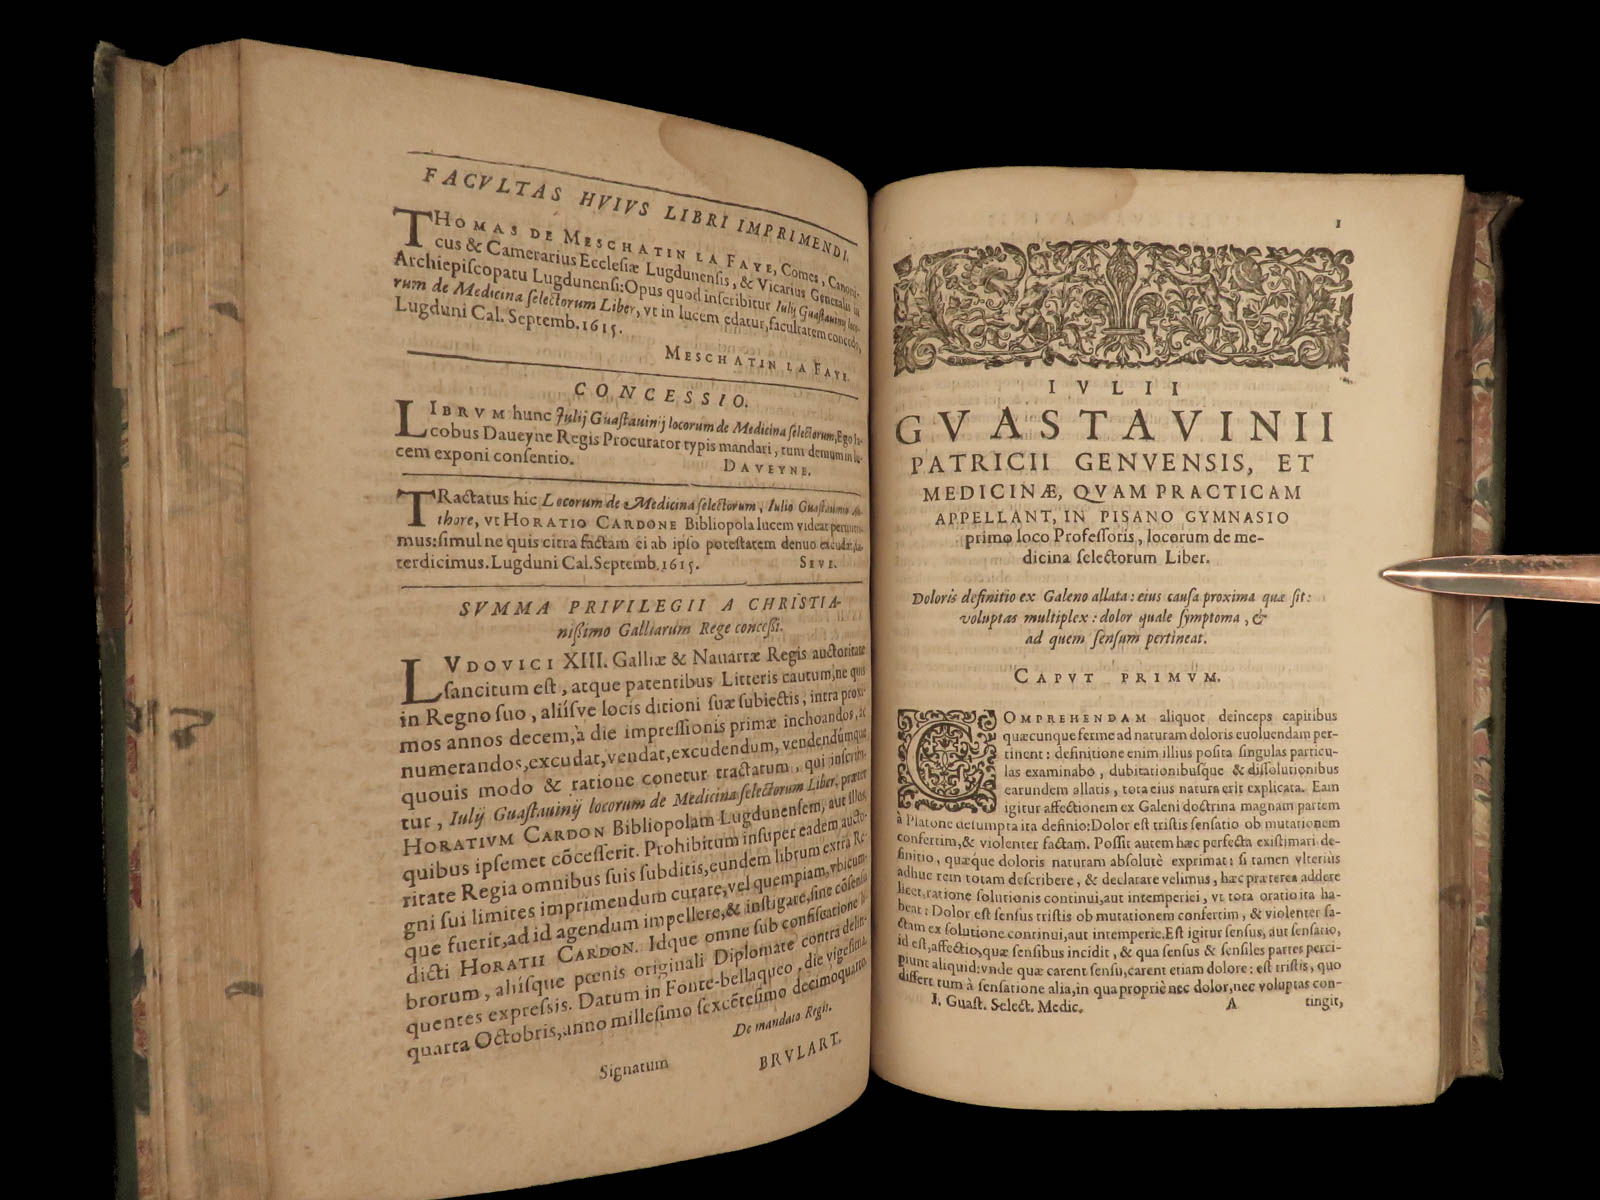 FACVLTAS HVIVS LIBRI IMPRIMENDI.
THOMAS DE MESCHATIN LA FAYE, Comes, Canoni-
cus & Camerarius Ecclesiæ Lugdunensis, & Vicarius Generalis in
Archiepiscopatu Lugdunensi: Opus quod inscribitur Iulij Guastauinij loco-
rum de Medicina selectorum Liber, vt in lucem edatur, facultatem concedo,
Lugduni Cal. Septemb. 1615.
MESCHATIN LA FAYE.
CONCESSIO.
LIBRVM hunc Julij Guastauinij locorum de Medicina selectorum, Ego Ia-
cobus Daueyne Regis Procurator typis mandari, tum demum in lu-
cem exponi consentio.
DAVEYNE.
TRactatus hic Locorum de Medicina selectorum, Iulio Guastauinio Au-
thore, vt HORATIO CARDONE Bibliopola lucem videat permitti-
mus: simul ne quis citra factam ei ab ipso potestatem denuo excudat, in-
terdicimus. Lugduni Cal. Septemb. 1615.
SEVE.
SVMMA PRIVILEGII A CHRISTIA-
nißimo Galliarum Rege concessi.
LVDOVICI XIII. Galliæ & Nauarræ Regis auctoritate
sancitum est, atque patentibus Litteris cautum, ne quis
in Regno suo, aliisve locis ditioni suæ subiectis, intra proxi-
mos annos decem, à die impressionis primæ inchoandos, ac
numerandos, excudat, vendat, excudendum, vendendúmque
quouis modo & ratione conetur tractatum, qui inscribi-
tur, Iulij Guastauinij locorum de Medicina selectorum Liber, præter
HORATIVM CARDON Bibliopolam Lugdunensem, aut illos,
quibus ipsemet cõcesserit. Prohibitum insuper eadem aucto-
ritate Regia omnibus suis subditis, eundem librum extra Re-
gni sui limites imprimendum curare, vel quempiam, vbicum-
que fuerit, ad id agendum impellere, & instigare, sine cõsensu
dicti HORATII CARDON. Idque omne sub confiscatione li-
brorum, aliisque pœnis originali Diplomate contra delin-
quentes expressis. Datum in Fonte-bellaqueo, die vigesima
quarta Octobris, anno millesimo sexcẽtesimo decimoquarto.
De mandato Regis.
Signatum
BRVLART.
1
IVLII
GVASTAVINII
PATRICII GENVENSIS, ET
MEDICINÆ, QVAM PRACTICAM
APPELLANT, IN PISANO GYMNASIO
primo loco Professoris, locorum de me-
dicina selectorum Liber.
Doloris definitio ex Galeno allata: eius causa proxima quæ sit:
voluptas multiplex: dolor quale symptoma, &
ad quem sensum pertineat.
CAPVT PRIMVM.
COMPREHENDAM aliquot deinceps capitibus
quæcunque ferme ad naturam doloris euoluendam per-
tinent: definitione enim illius posita singulas particu-
las examinabo, dubitationibusque & dissolutionibus
earundem allatis, tota eius natura erit explicata. Eam
igitur affectionem ex Galeni doctrina magnam partem
à Platone desumpta ita definio: Dolor est tristis sensatio ob mutationem
confertim, & violenter factam. Possit autem hæc perfecta existimari de-
finitio, quæque doloris naturam absolutè exprimat: si tamen vlterius
adhuc rem totam describere, & declarare velimus, hæc præterea addere
licet, ratione solutionis continui, aut intemperici, vt tota oratio ita ha-
beat: Dolor est sensus tristis ob mutationem confertim, & violenter fa-
ctam ex solutione continui, aut intemperie. Est igitur sensus, aut sensatio,
id est, affectio, quæ sensibus incidit, & qua sensus & sensiles partes perci-
piunt aliquid: vnde quæ carent sensu, carent etiam dolore: est tristis, quo
differt tum à sensatione alia, in qua propriè nec dolor, nec voluptas con-
I. Guast. Select. Medic. A tingit,